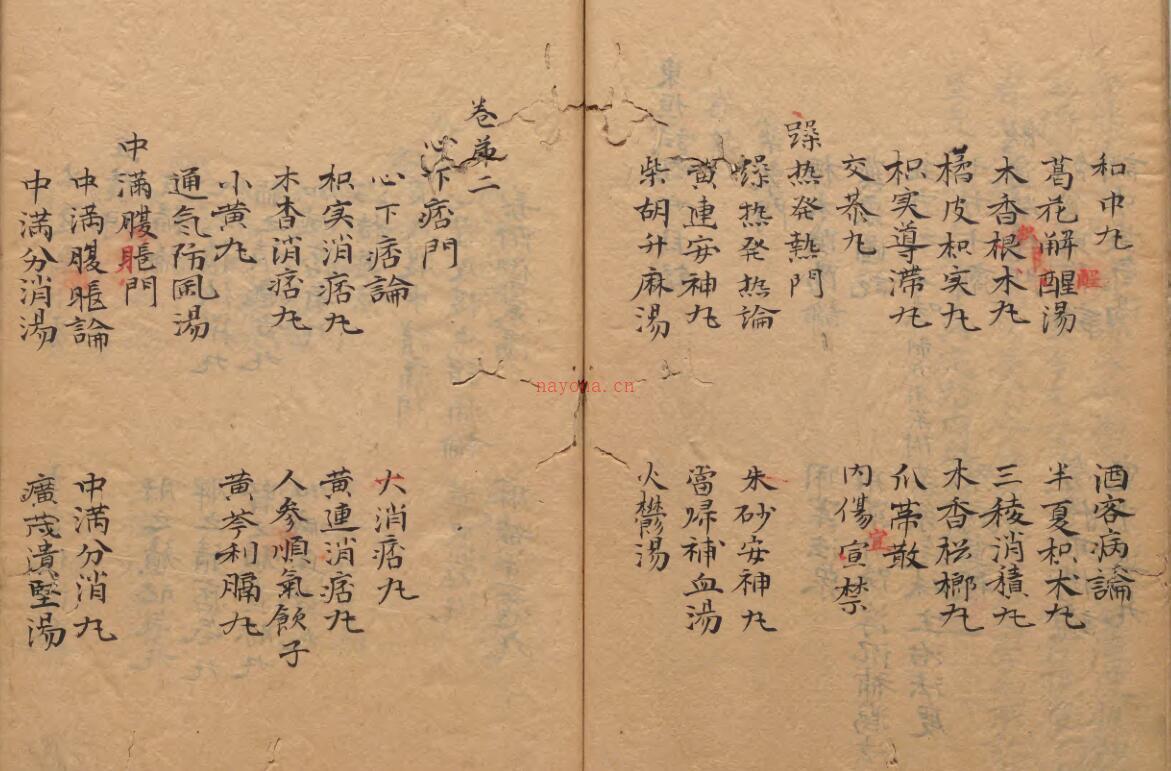 和中丸 酒客病論
葛花觧醒湯 半夏枳术丸
木香根木丸 三稜消積丸
橘皮枳実丸 木香梹榔丸
枳実導滞丸 瓜蒂散
交泰丸 内傷宣禁
宜
躁热発熱門
燥热発热論 朱砂安神丸
黄連安神丸 當歸補血湯
柴胡升麻湯 火欝湯
卷苐二
心下痞門
心下痞論 大消痞丸
枳実消痞丸 黄連消痞丸
木杳消痞丸 人参順氣飲子
小黄丸 黄芩利膈丸
通気防風湯
中滿腹脹門
中滿腹脹論 中滿分消丸
中滿分消湯 廣茂潰堅湯
nayona.cn